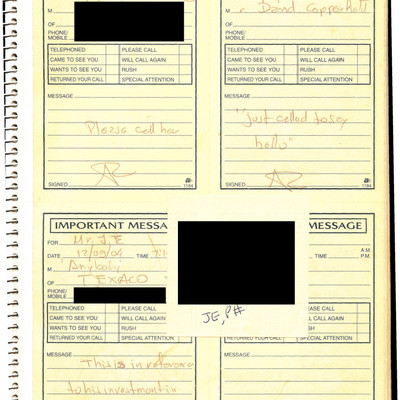 M
OF
PHONE/
MOBILE
TELEPHONED PLEASE CALL
CAME TO SEE YOU WILL CALL AGAIN
WANTS TO SEE YOU RUSH
RETURNED YOUR CALL SPECIAL ATTENTION
MESSAGE
Please call her
SIGNED
1184
M David Copperfield
OF
PHONE/
MOBILE
TELEPHONED PLEASE CALL
CAME TO SEE YOU WILL CALL AGAIN
WANTS TO SEE YOU RUSH
RETURNED YOUR CALL SPECIAL ATTENTION
MESSAGE
"just called to say
hello"
SIGNED
1184
IMPORTANT MESSA
FOR Mr. J.E
DATE 12/09/04 TIME
M Anybody
OF TEXACO
PHONE/
MOBILE
TELEPHONED PLEASE CALL
CAME TO SEE YOU WILL CALL AGAIN
WANTS TO SEE YOU RUSH
RETURNED YOUR CALL SPECIAL ATTENTION
MESSAGE
This is in reference
to his investment in
MESSAGE
TIME A.M.
P.M.
JE, P#
PLEASE CALL
WILL CALL AGAIN
WANTS TO SEE YOU RUSH
RETURNED YOUR CALL SPECIAL ATTENTION
MESSAGE